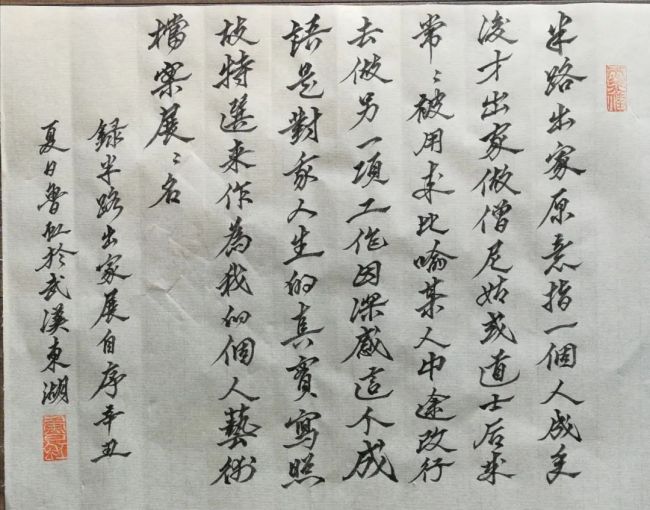 半路出家原意指一個人成年
後才出家做僧尼姑或道士后来
常〻被用来比喻某人中途改行
去做另一項工作因深感這个成
語是對我人生的真實寫照
故特選来作為我的個人藝術
檔案展〻名
録半路出家展自序辛丑
夏日魯虹於武漢東湖